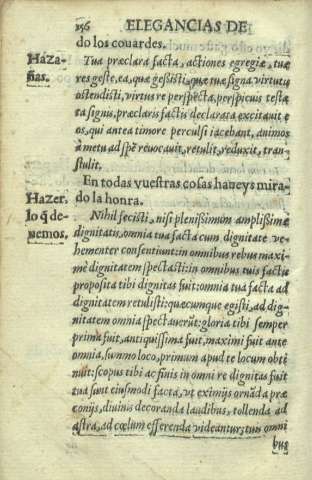 256 ELEGANCIAS DE
do los couardes.
Haza- Tua præclara facta, actiones egregiæ, tuæ
ñas. res gestæ, ea, quæ gessisti, quæ tua signa virtutū
ostendisti, virtus re perspecta, perspicuis testa-
ta signis, præclaris factis declarata excitauit e
os, qui antea timore perculsi iacebant, animos
à metu ad spē reuocauit, retulit, reduxit, tran-
stulit.
En todas vuestras cosas haueys mira-
Hazer do la honra.
lo q̄ de- Nihil fecisti, nisi plenissimum amplissimæ
uemos. dignitatis, omnia tua facta cum dignitate ve-
hementer consentiunt: in omnibus rebus maxi-
mè dignitatem spectasti: in omnibus tuis factis
proposita tibi dignitas fuit: omnia tua facta ad
dignitatem retulisti: quæcumque egisti, ad dig-
nitatem omnia spectauerūt: gloria tibi semper
prima fuit, antiquissima fuit, maximi fuit ante
omnia, summo loco, primum apud te locum obti-
nuit: scopus tibi ac finis in omni re dignitas fuit
tua sunt eiusmodi facta, vt eximijs ornāda præ
conijs, diuinis decoranda laudibus, tollenda ad
astra, ad cœlum efferenda videantur: tuis omni
bus